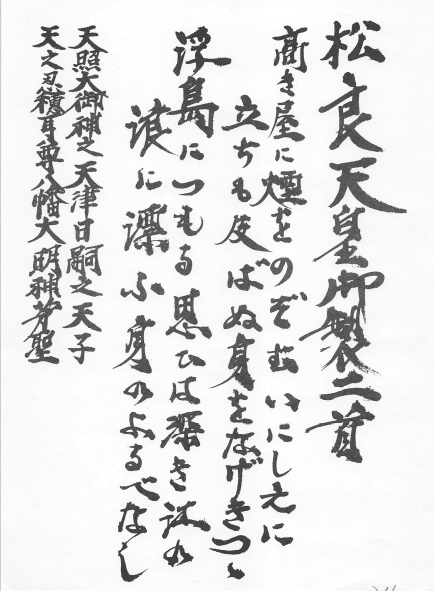 松良天皇御製二首
高き屋に煙をのぞむいにしえに
立ちも及ばぬ身をなげきつゝ
浮島につもる思ひは深き海の
浪に漂ふ身のよるべなし
天照大御神之天津日嗣之天子
天之忍穂耳尊八幡大明神芳聖